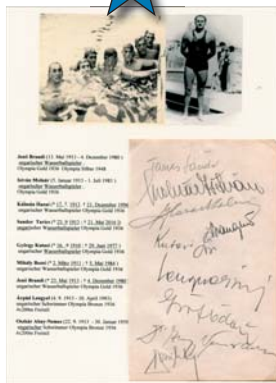 Jenö Brandi (13. Mai 1913 - 6. Dezember 1980)
ungarischer Wasserballspieler
Olympia Gold 1936 Olympia Silber 1948
István Molnár (5. Januar 1913 - 1. Juli 1983)
ungarischer Wasserballspieler
Olympia Gold 1936
Kálmán Hazai (* 17. 7. 1913 - † 21. Dezember 1996
ungarischer Wasserballspieler Olympia Gold 1936
Sandor Tarics (* 23. 9. 1913 - † 21. Mai 2016
ungarischer Wasserballspieler Olympia Gold 1936
György Kutasi (* 16. 9. 1910 - † 29. Juni 1977)
ungarischer Wasserballspieler Olympia Gold 1936
Mihály Bozsi (* 2. März 1911 - † 5. Mai 1984)
ungarischer Wasserballspieler Olympia Gold 1936
Jenö Brandi (* 23. Mai 1913 - † 6. Dezember 1980
ungarischer Wasserballspieler Olympia Gold 1936
Árpád Lengyel (4. 9. 1915 - 10. April 1993)
ungarischer Schwimmer Olympia Bronze 1936
4x200m Freistil
Oszkár Abay-Nemes (27. 9. 1913 - 30. Januar
ungarischer Schwimmer Olympia Bronze 1936
4x200m Freistil
Tarics Sándor
Molnár István
Hazai Kálmán
Kutasi